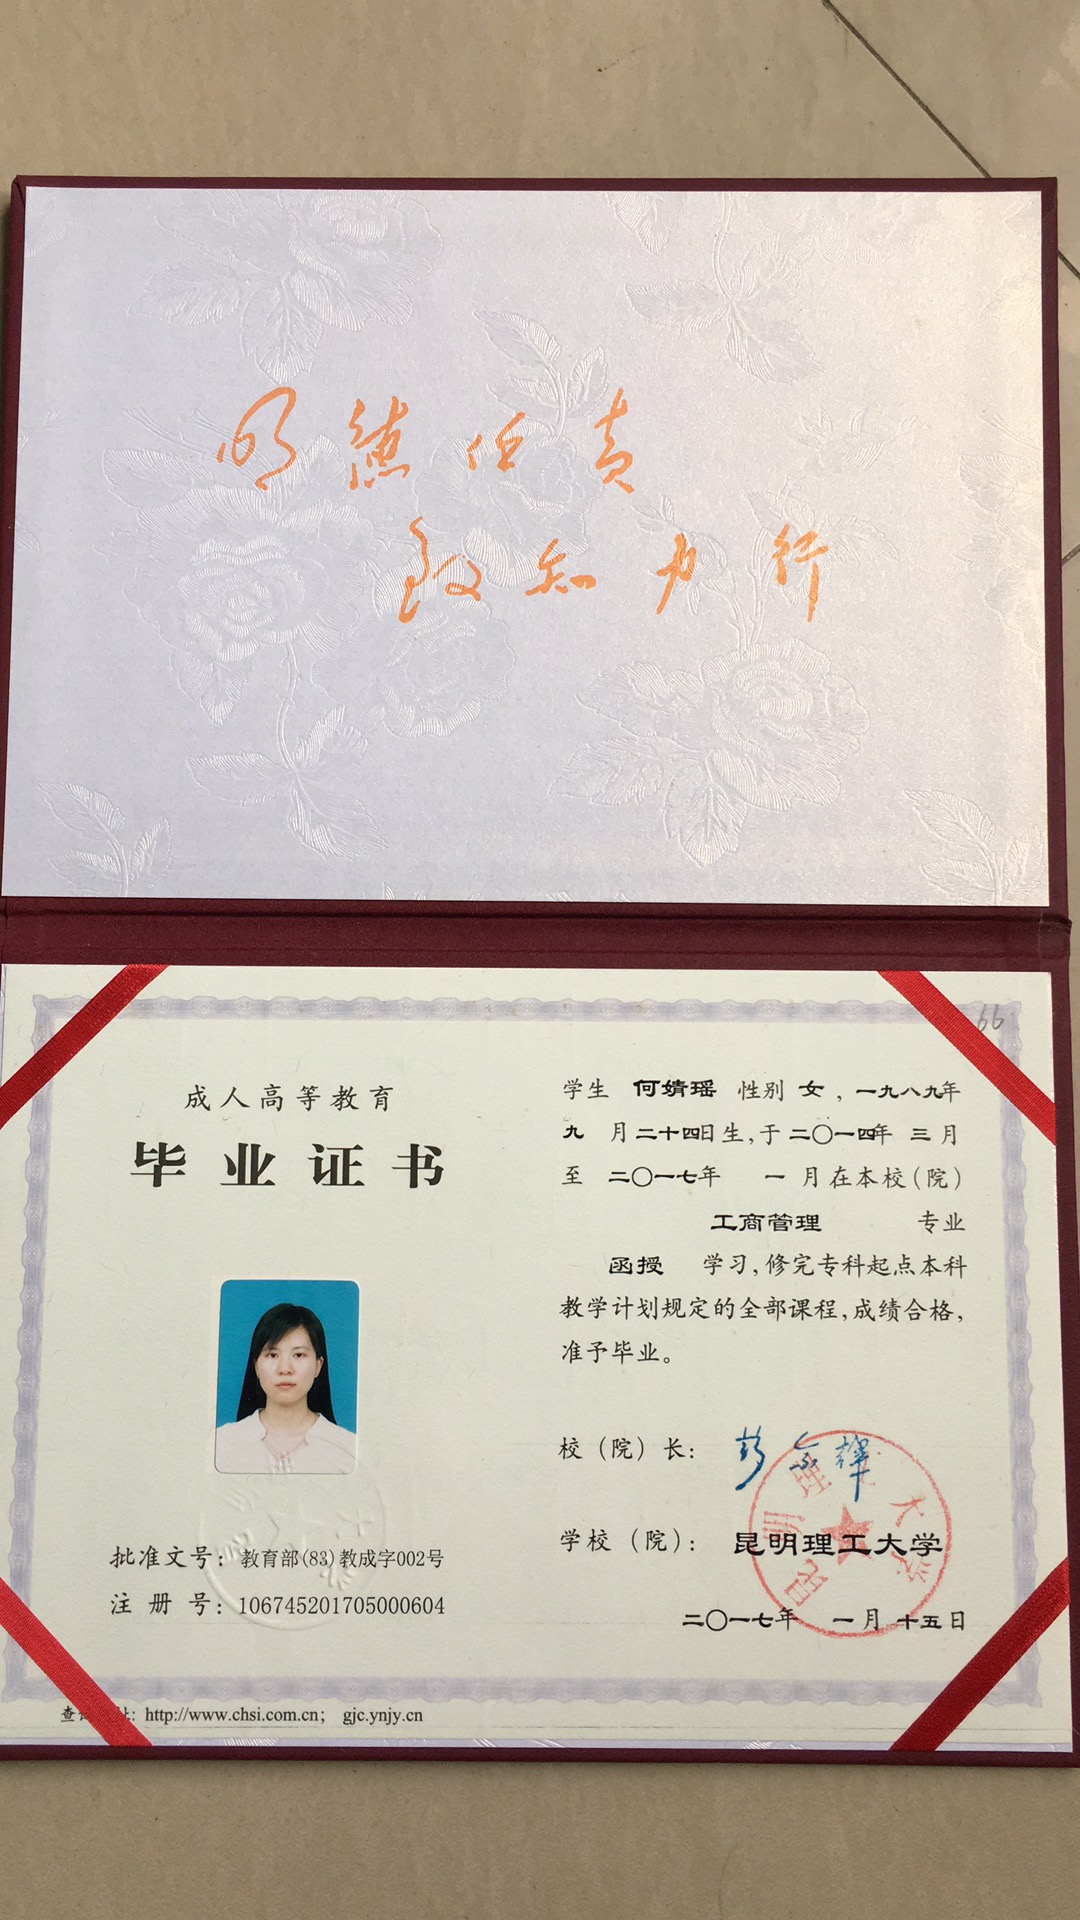 明德任责
致知力行
66
成人高等教育
毕业证书
学生 何婧瑶 性别 女，一九八九年
九 月二十四日生，于二〇一四年 三月
至 二〇一七年 一 月在本校（院）
工商管理 专业
函授 学习，修完专科起点本科
教学计划规定的全部课程，成绩合格，
准予毕业。
校（院）长：
学校（院）：昆明理工大学
昆明理工大学
二〇一七年 一月十五日
批准文号：教育部(83)教成字002号
注 册 号：106745201705000604
http://www.chsi.com.cn； gjc.ynjy.cn